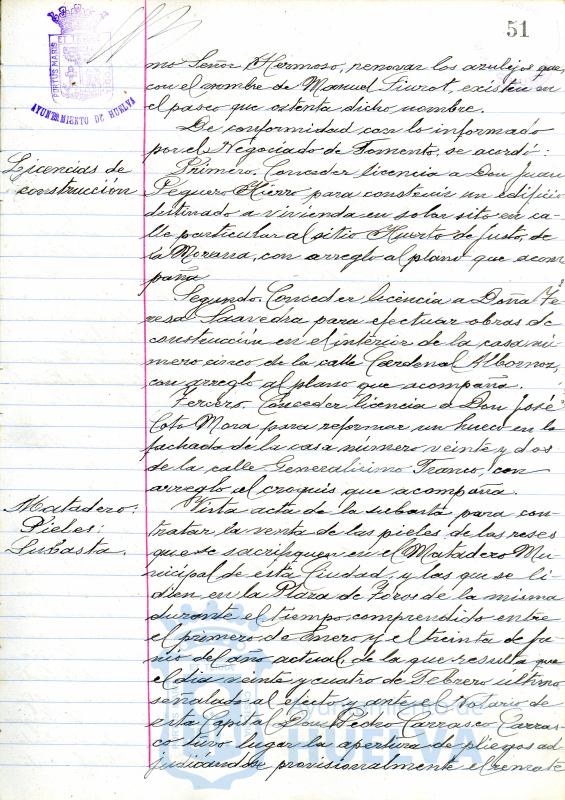 51
PORTUS MARIS
AYUNTAMIENTO DE HUELVA
mo Señor Hermoso, renovar los azulejos que,
con el nombre de Manuel Siurot, existen en
el paseo que ostenta dicho nombre.
De conformidad con lo informado
por el Negociado de Fomento, se acordó:
Licencias de
construcción
Primero. Conceder licencia a Don Juan
Peguero Hierro para construir un edificio
destinado a vivienda en solar sito en ca-
lle particular al sitio Huerto de Justo, de
la Morana, con arreglo al plano que acom
paña
Segundo. Conceder licencia a Doña Te-
resa Saavedra para efectuar obras de
construcción en el interior de la casa nú-
mero cinco de la calle Cardenal Albornoz,
con arreglo al plano que acompaña.
Tercero. Conceder licencia a Don José
Coto Mora para reformar un hueco en la
fachada de la casa número veinte y dos
de la calle Generalísimo Franco, con
arreglo al croquis que acompaña.
Matadero:
Pieles:
Subasta.
Vista acta de la subasta para con-
tratar la venta de las pieles de las reses
que se sacrifiquen en el Matadero Mu-
nicipal de esta Ciudad, y las que se li-
dien en la Plaza de Toros de la misma
durante el tiempo comprendido entre
el primero de Enero y el treinta de ju-
nio del año actual, de la que resulta que
el día veinte y cuatro de Febrero último
señalado al efecto y ante el Notario de
esta Capital Don Pedro Carrasco Carras-
co tuvo lugar la apertura de pliegos ad-
judicándose provisionalmente el remate
HUELVA